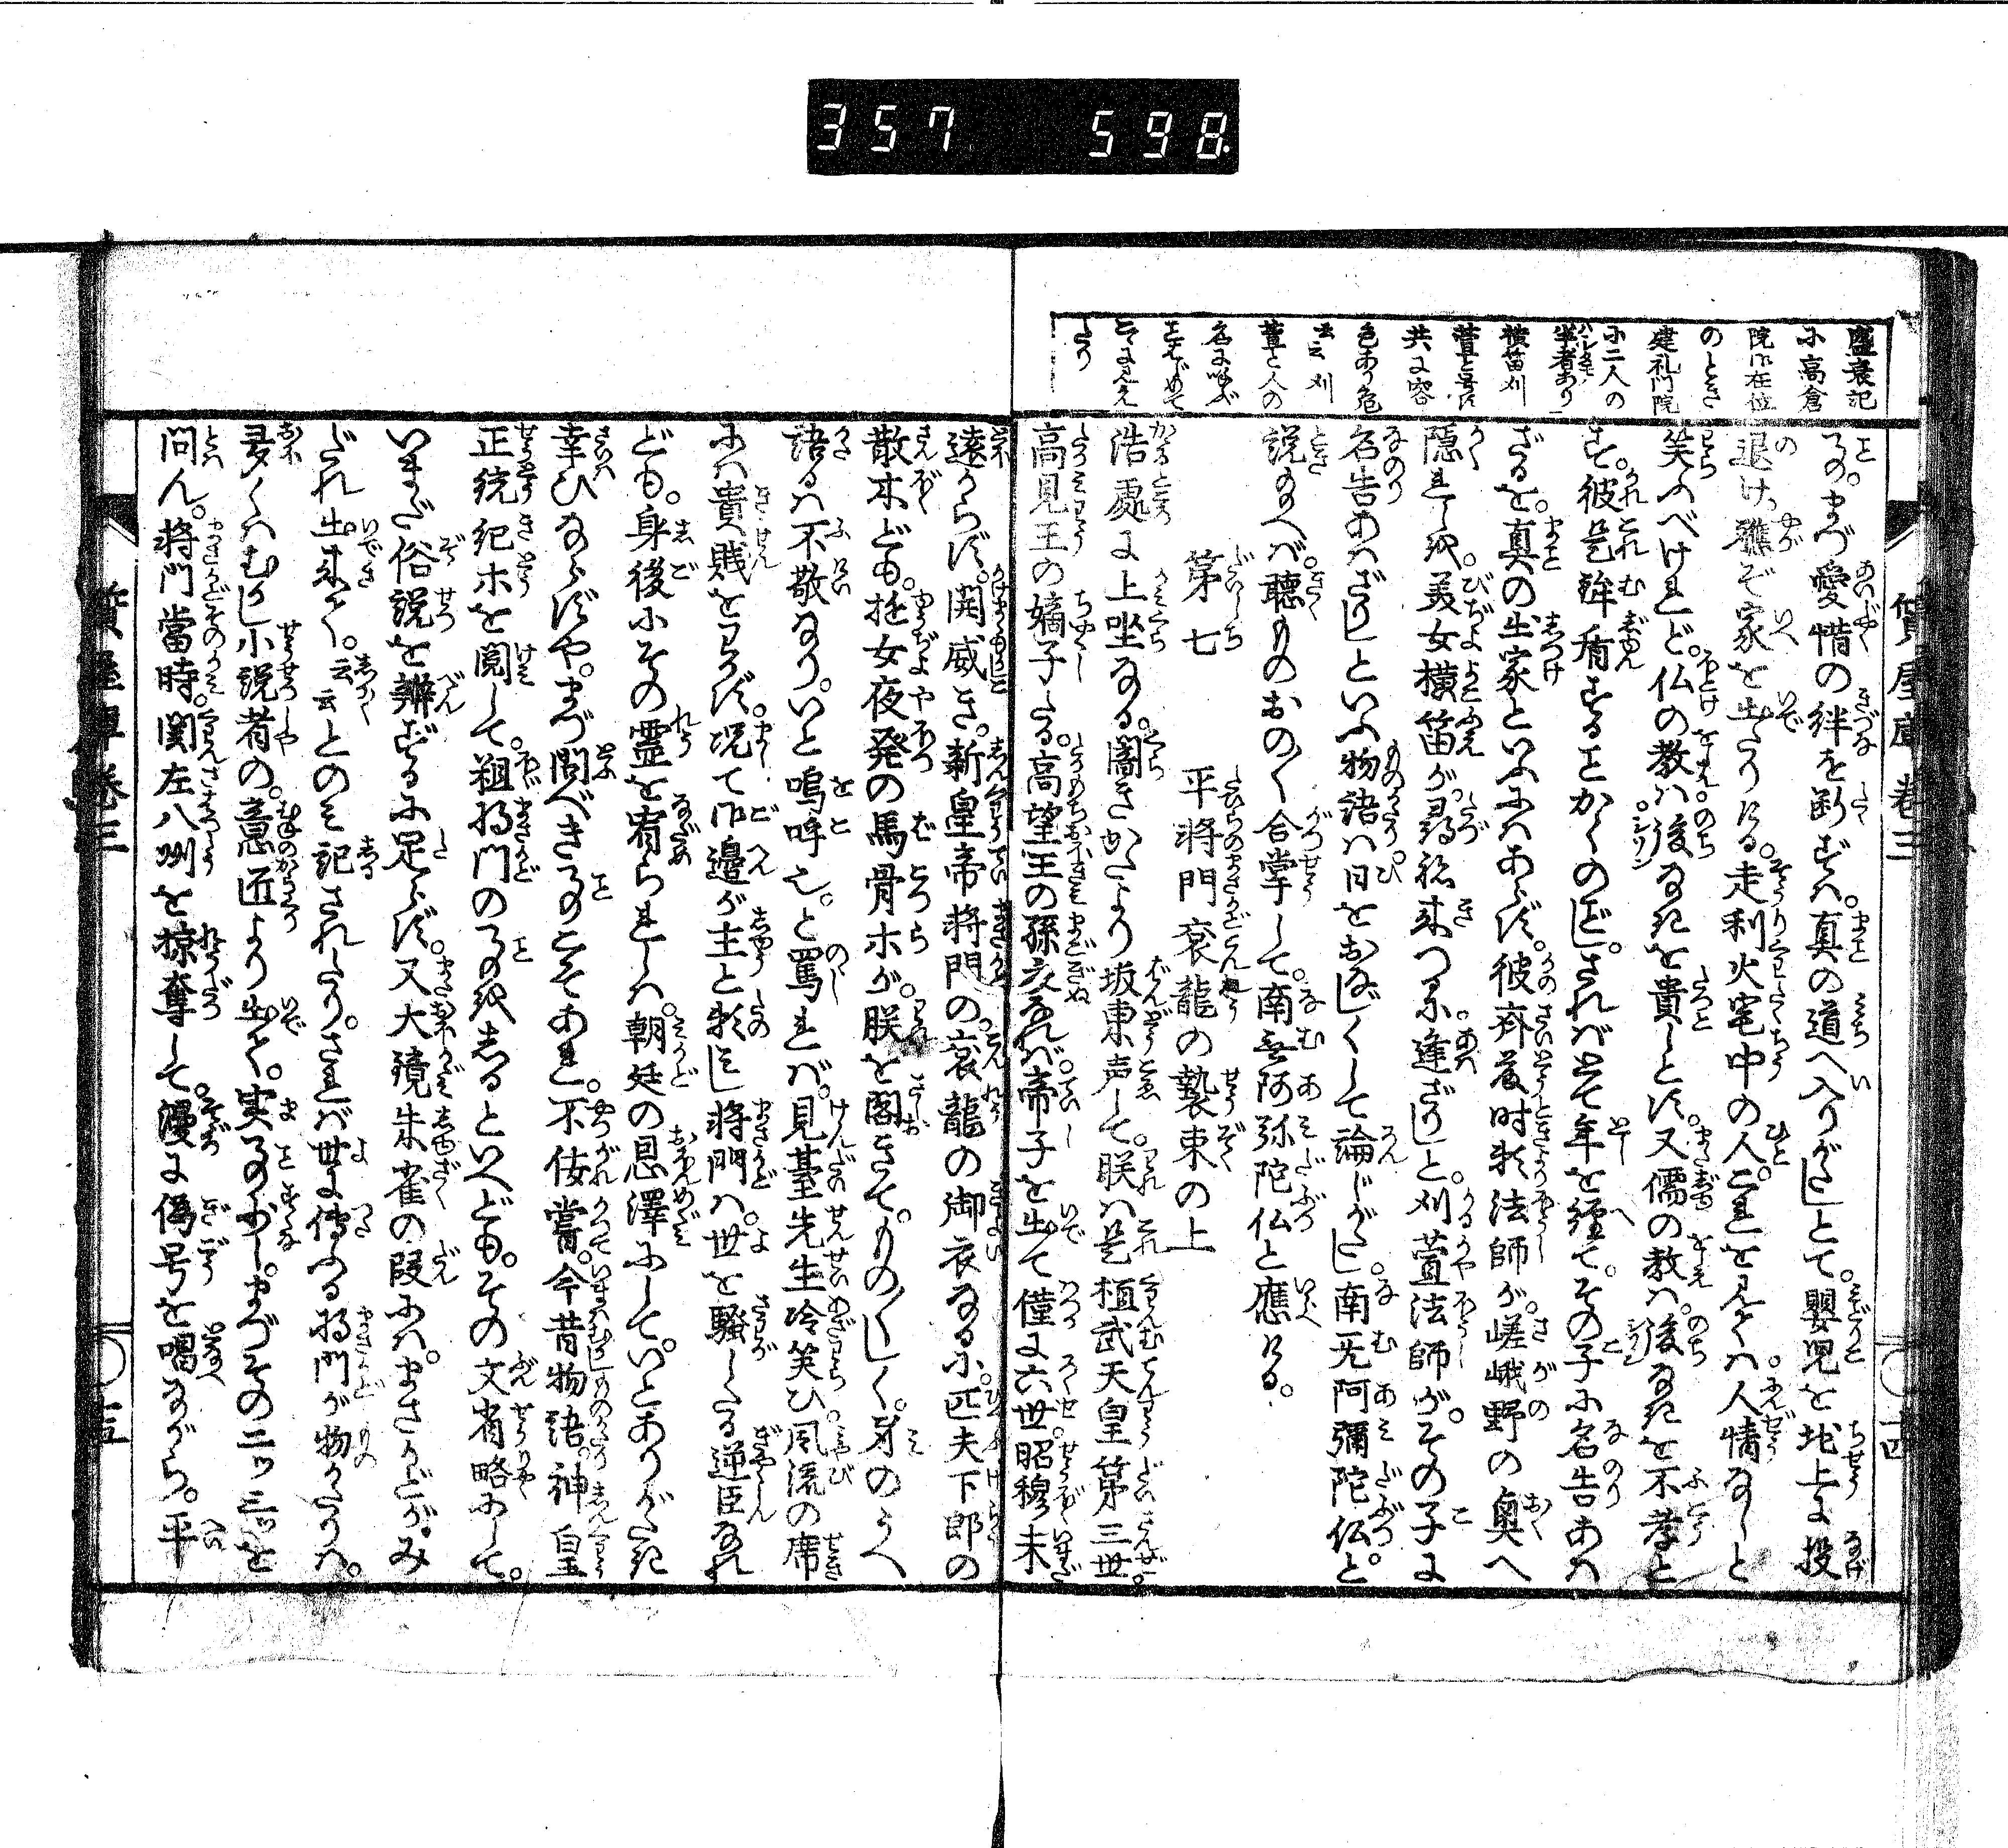 357 598
盛衰記
に高倉
院御在位
のとき
建礼門院
に二人の
半者あり
ハシタモノ
横笛刈
萱と号す
共に容
色あり危
云云刈
萱を人の
名に呼が
とこに見え
たり
質屋庫巻三
る。まづ愛惜の絆を断ざれは。真の道へ入りがたしとて。嬰児を地上に投
退け。軈ぞ家を出たりける。走利火宅中の人。これを見ては人情なしと
笑ふべけれど。仏の教は後なきを貴しとす。又儒の教は。後なきを不孝と
す。彼是鉾盾することかくのごとし。さればとて年を経て。その子に名告あは
ざるを。真の出家といふにはあらず。彼斉藤時頼法師が。嵯峨野の奥へ
隠れしを。美女横笛が尋ね来つるに逢ざりしと。刈萱法師が。その子に
名告あはざりしといふ物語は日をおなじくして論じがたし。南无阿彌陀仏と。
説給へば。聴ものおの〳〵合掌して。南無阿弥陀仏と應ける。
第七　平将門袞龍の装束の上
浩處に上坐なる。闇きかたより坂東声して。朕は是桓武天皇第三世。
高見王の嫡子たる。高望王の孫なれば。帝子を出て僅に六世。昭穆未
十四
遠からず。関威き。新皇帝将門の。袞龍の御衣なるに。匹夫下郎の
散木ども。遊女夜発の馬骨ホが。朕を閣きて。もの〳〵しく。身のうへ
語るは不敬なり。いと嗚呼也。と罵れば。見臺先生冷笑ひ。風流の席
には貴賤をえらばず。况て御邊が主と頼みし将門は。世を騒したる逆臣なれ
ども。身後にその霊を宥られしは。朝廷の恩澤にして。いとありがたき
幸ひならずや。まづ問べきことこそあれ。不佞嘗。今昔物語。神皇
正統紀ホを閲して。粗将門の事をしるといへども。その文省略にして。
いまだ俗説を辨ずるに足らず。又大鏡朱雀の段には。まさかどが。み
だれ出来て。云云とのみ記されたり。されば世に傳ふる将門が物がたりは。
多くはむかし小説者の。意匠より出て。実事少し。まづその二ッ三ッを
問ん。将門當時。関左八州を掠奪して。漫に偽号を唱ながら。平
質屋庫巻三
十五